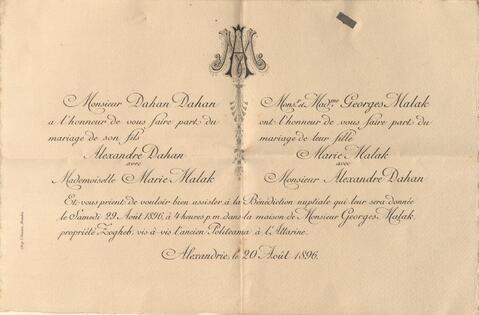 AM
Monsieur Dahan Dahan
a l'honneur de vous faire part du
mariage de son fils
Alexandre Dahan
avec
Mademoiselle Marie Malak
Mons. et Mad.me Georges Malak
ont l'honneur de vous faire part du
mariage de leur fille
Marie Malak
avec
Monsieur Alexandre Dahan
Et vous prient de vouloir bien assister à la Bénédiction nuptiale qui leur sera donnée
le Samedi 29 Août 1896, à 4 heures p.m. dans la maison de Monsieur Georges Malak,
propriété Zogheb, vis à vis l'ancien Politeama à l'Attarine.
Alexandrie, le 20 Août 1896.